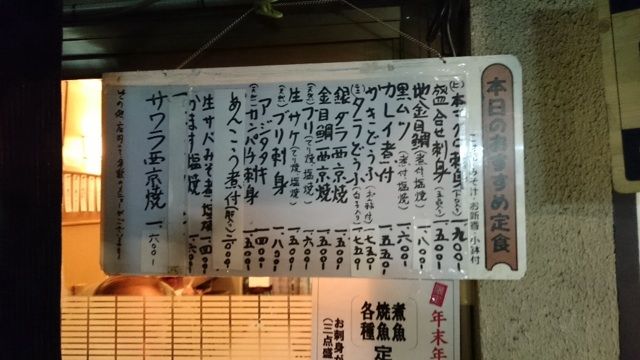 本日のおすすめ定食
ごはん・みそ汁・お新香・小鉢付
本マグロ刺身 一、九〇〇
盛合せ刺身 一、五〇〇
地金目鯛(煮付塩焼) 一、八〇〇
黒ムツ(煮付塩焼) 一、六〇〇
カレイ煮付 一、五五〇
カキどうふ(お鍋付) 一、七五〇
タラどうふ(白子入り) 一、七五〇
銀ダラ西京焼 一、五〇〇
金目鯛西京焼 一、五〇〇
ブリ(てり焼塩焼) 一、六〇〇
生サケ(てり焼塩焼) 一、五〇〇
ブリ刺身 一、八〇〇
アジタタキ 一、四〇〇
カンパチ刺身 一、八〇〇
あんこう煮付 二、〇〇〇
生サバみそ煮・塩焼 一、四〇〇
かます塩焼
サワラ西京焼 一、六〇〇
煮魚
焼魚
各種定
お刺身
(三点盛
年末年